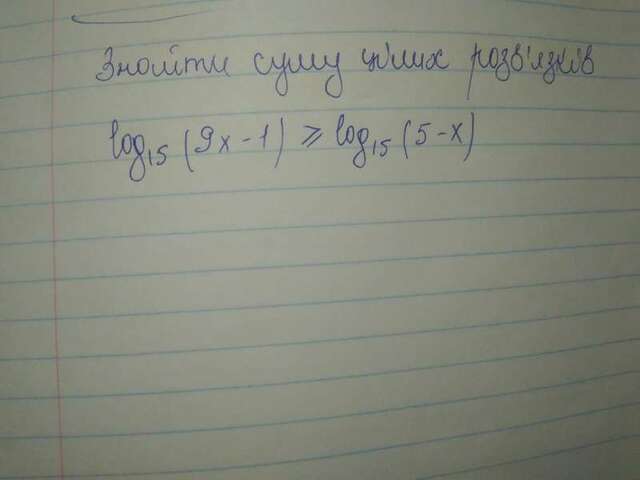 Знайти суму цілих розв'язків
log₁₅(9x-1) ⩾ log₁₅(5-x)